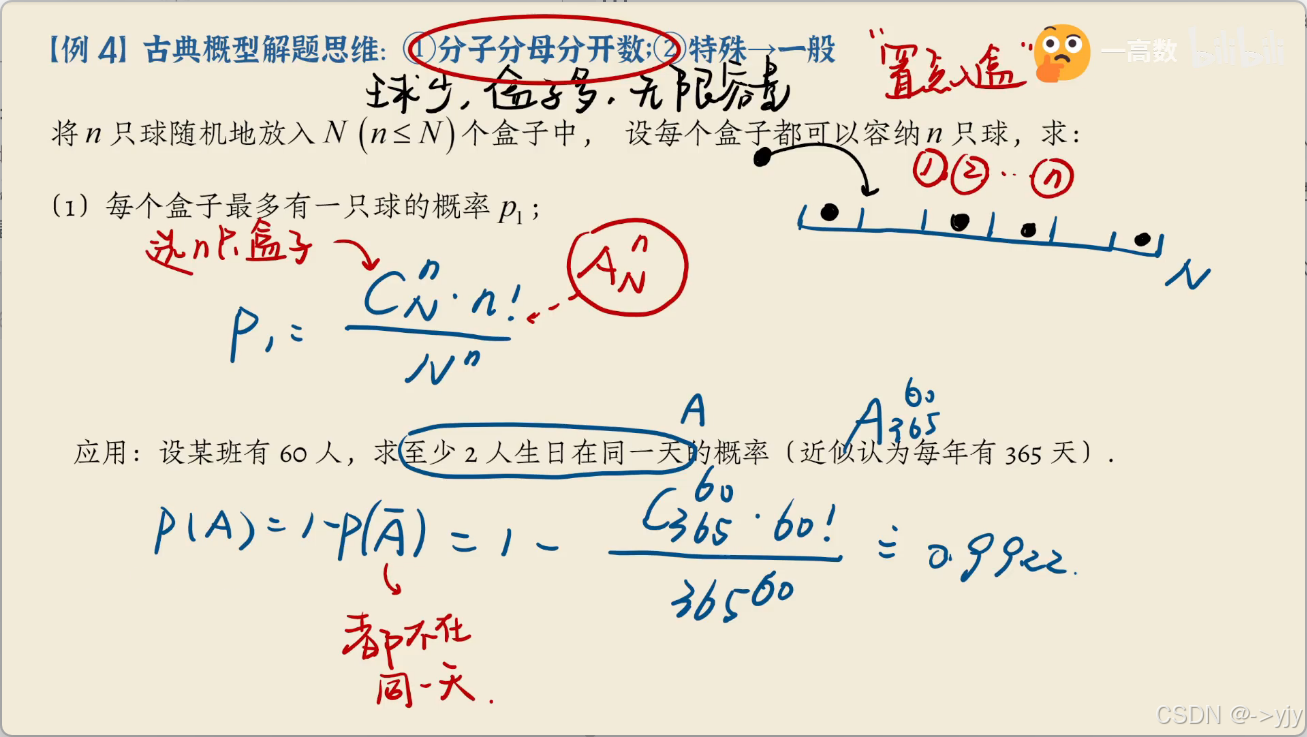 【例 4】古典概型解题思维：①分子分母分开数；②特殊→一般
"置点入盒"
一高数 bilibili
球少，盒子多，无限容量
将 n 只球随机地放入 N (n ≤ N) 个盒子中， 设每个盒子都可以容纳 n 只球，求：
① ② … ⓝ
（1）每个盒子最多有一只球的概率 p₁；
N
选n只盒子
A_N^n
P₁ = \frac{C_N^n · n!}{N^n}
A
A_{365}^{60}
应用：设某班有 60 人，求至少 2 人生日在同一天的概率（近似认为每年有 365 天）．
P(A) = 1-P(Ā) = 1 - \frac{C_{365}^{60} · 60!}{365^{60}} ≐ 0.9922.
都不在
同一天.
CSDN @->yjy